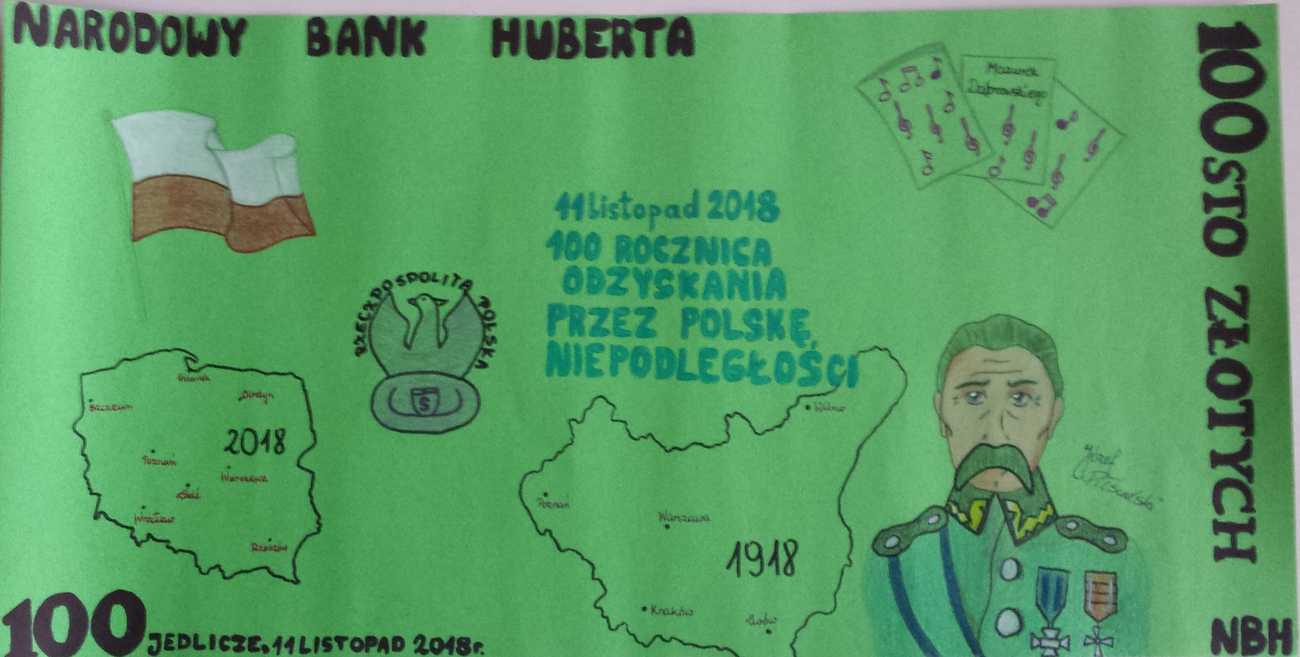 NARODOWY BANK HUBERTA
100 STO ZŁOTYCH
Mazurek
Dąbrowskiego
11 listopad 2018
100 ROCZNICA
ODZYSKANIA
PRZEZ POLSKĘ
NIEPODLEGŁOŚCI
RZECZPOSPOLITA POLSKA
S
Gdańsk
Szczecin
Olsztyn
2018
Poznań
Warszawa
Łódź
Wrocław
Rzeszów
Wilno
Poznań
Warszawa
1918
Kraków
Lwów
Józef
Piłsudski
100 JEDLICZE, 11 LISTOPAD 2018r.
NBH